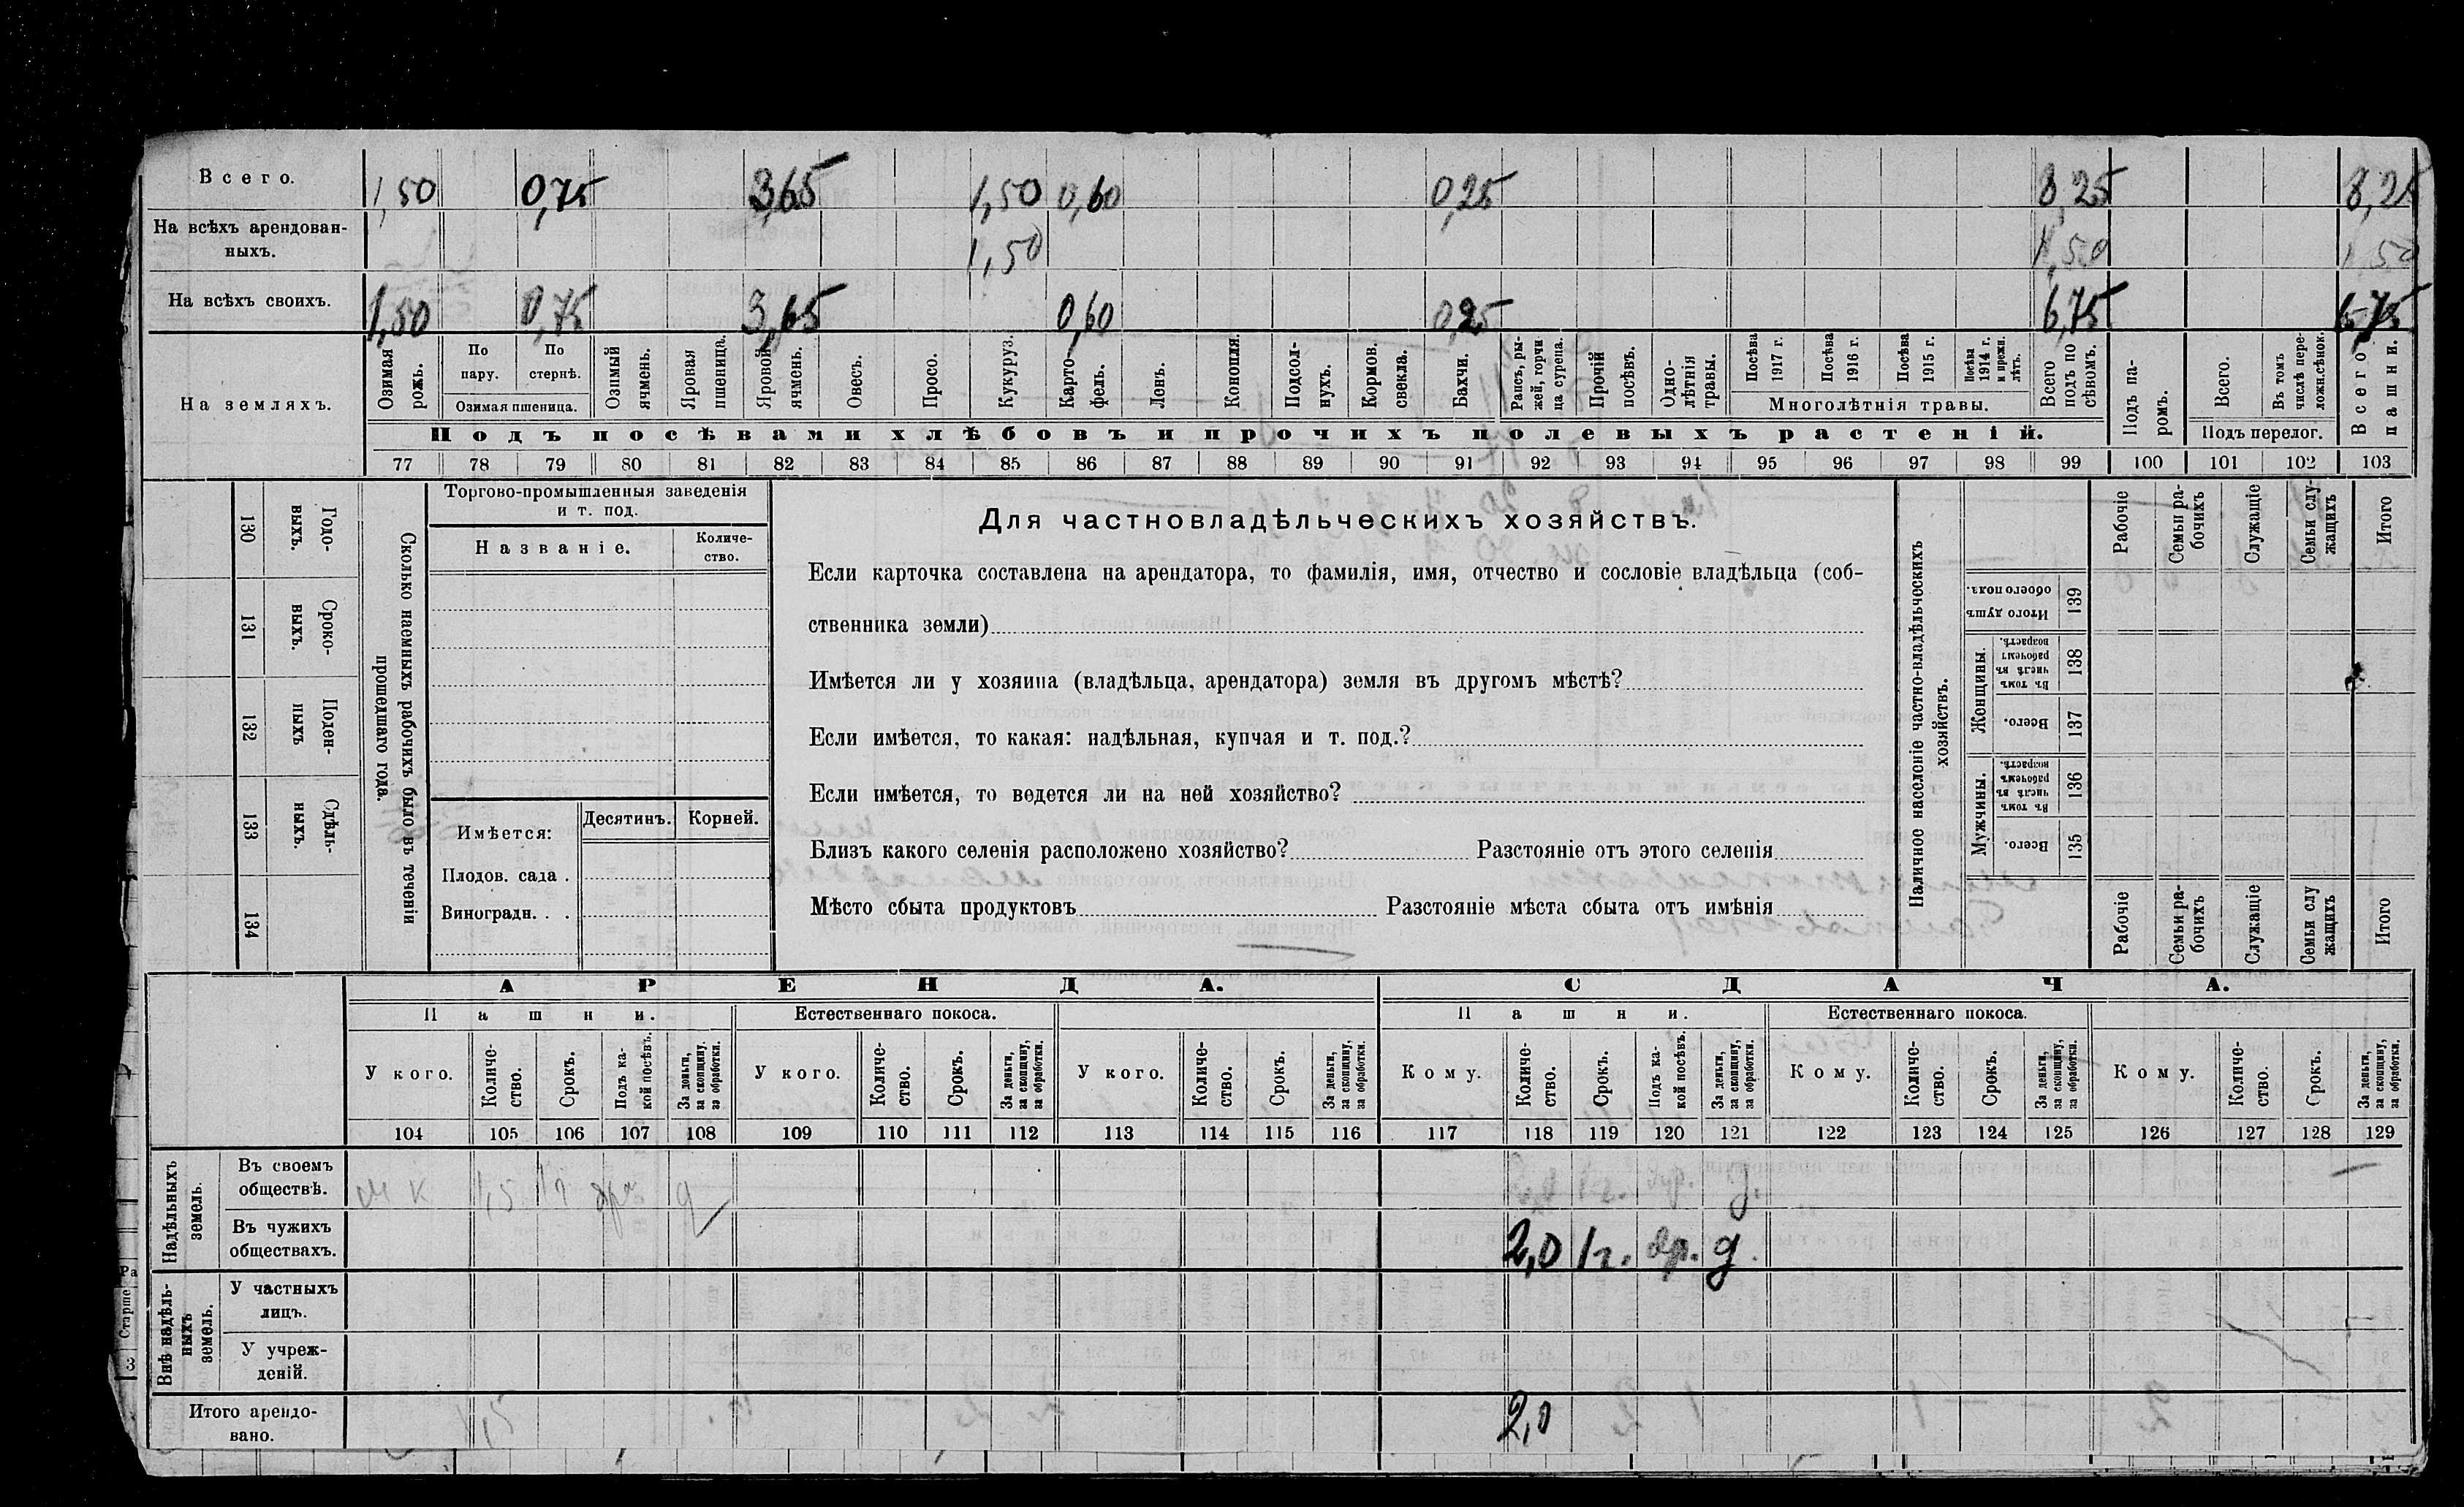 Всего. 1,50 0,75 3,65 1,50 0,60 0,25 8,25 8,25
На всѣхъ арендован-
ныхъ. 1,50 1,50 1,50
На всѣхъ своихъ. 1,50 0,75 3,65 0,60 0,25 6,75 6,75
На земляхъ.
Озимая рожь.
По пару.
По стернѣ.
Озимая пшеница.
Озимый ячмень.
Яровая пшеница.
Яровой ячмень.
Овесъ.
Просо.
Кукуруз.
Карто-
фель.
Ленъ.
Конопля.
Подсол-
нухъ.
Кормов. свекла.
Бахчи.
Рапсъ, ры-
жей, горчи
ца сурепа.
Прочій посѣвъ.
Одно-
лѣтнія
травы.
Посѣва 1917 г.
Посѣва 1916 г.
Посѣва 1915 г.
Посѣва 1914 г. и прежн. лѣтъ.
Многолѣтнія травы.
Всего подъ по
сѣвомъ.
Подъ па-
ромъ.
Всего.
Въ томъ числѣ пере-
ложн.сѣнок.
Подъ перелог.
Всего пашни.
Подъ посѣвами хлѣбовъ и прочихъ полевыхъ растеній.
77 78 79 80 81 82 83 84 85 86 87 88 89 90 91 92 93 94 95 96 97 98 99 100 101 102 103
130 Годо-
выхъ.
131 Сроко-
выхъ.
132 Поден-
ныхъ
133 Сдѣль-
ныхъ.
134
Сколько наемныхъ рабочихъ было въ теченіи
прошедшаго года.
Торгово-промышленныя заведенія
и т. под.
Названіе.
Количе-
ство.
Имѣется:
Десятинъ.
Корней.
Плодов. сада .
Виноградн. . .
Для частновладѣльческихъ хозяйствъ.
Если карточка составлена на арендатора, то фамилія, имя, отчество и сословіе владѣльца (соб-
ственника земли)
Имѣется ли у хозяина (владѣльца, арендатора) земля въ другомъ мѣстѣ?
Если имѣется, то какая: надѣльная, купчая и т. под.?
Если имѣется, то ведется ли на ней хозяйство?
Близъ какого селенія расположено хозяйство? Разстояніе отъ этого селенія
Мѣсто сбыта продуктовъ Разстояніе мѣста сбыта отъ имѣнія
Наличное населеніе частно-владѣльческихъ
хозяйствъ.
Рабочіе
Семьи ра-
бочихъ
Служащіе
Семьи слу-
жащихъ
Итого
Итого душъ обоего пола. 139
Женщины.
Въ томъ числѣ въ рабочемъ возрастѣ. 138
Всего. 137
Мужчины.
Въ томъ числѣ въ рабочемъ возрастѣ. 136
Всего. 135
Рабочіе
Семьи ра-
бочихъ
Служащіе
Семьи слу
жащихъ
Итого
АРЕНДА. СДАЧА.
Пашни. Естественнаго покоса. Пашни. Естественнаго покоса.
У кого. Количе-
ство. Срокъ. Подъ ка-
кой посѣвъ. За деньги, за скопщину, за обработки.
У кого. Количе-
ство. Срокъ. За деньги, за скопщину, за обработки.
У кого. Количе-
ство. Срокъ. За деньги, за скопщину, за обработки.
Кому. Количе-
ство. Срокъ. Подъ ка-
кой посѣвъ. За деньги, за скопщину, за обработки.
Кому. Количе-
ство. Срокъ. За деньги, за скопщину, за обработки.
Кому. Количе-
ство. Срокъ. За деньги, за скопщину, за обработки.
104 105 106 107 108 109 110 111 112 113 114 115 116 117 118 119 120 121 122 123 124 125 126 127 128 129
Надѣльныхъ
земель.
Въ своемъ
обществѣ. м к 1,5 1 г д 1 г. д.
Въ чужихъ
обществахъ. 2,0 1 г. яр. д.
Внѣ надѣль-
ныхъ
земель.
У частныхъ
лицъ.
У учреж-
деній.
Итого арендо-
вано. 1,5 2,0
Ра
Старше
3